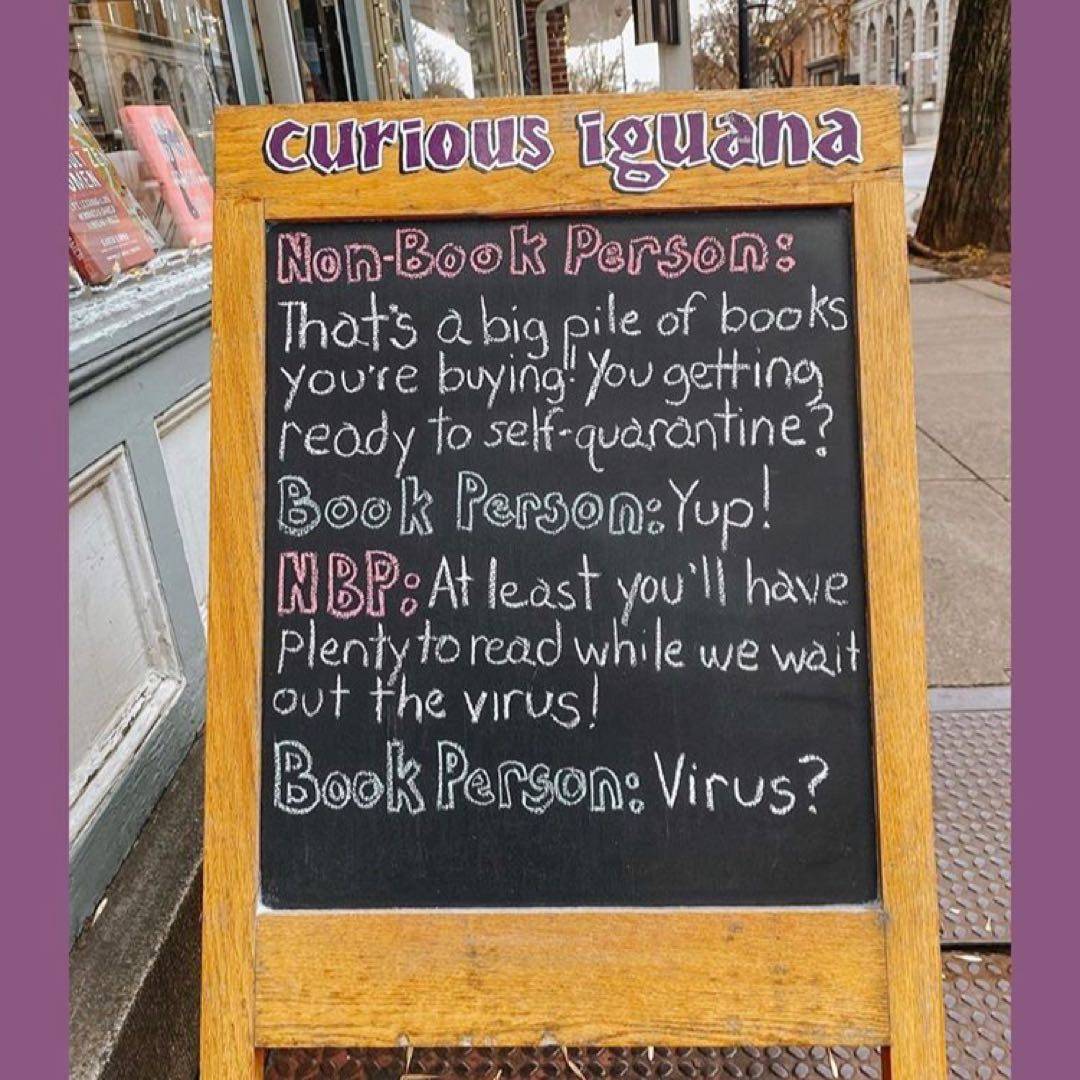 curious iguana
Non-Book Person:
That's a big pile of books
you're buying! You getting
ready to self-quarantine?
Book Person: Yup!
NBP: At least you'll have
plenty to read while we wait
out the virus!
Book Person: Virus?